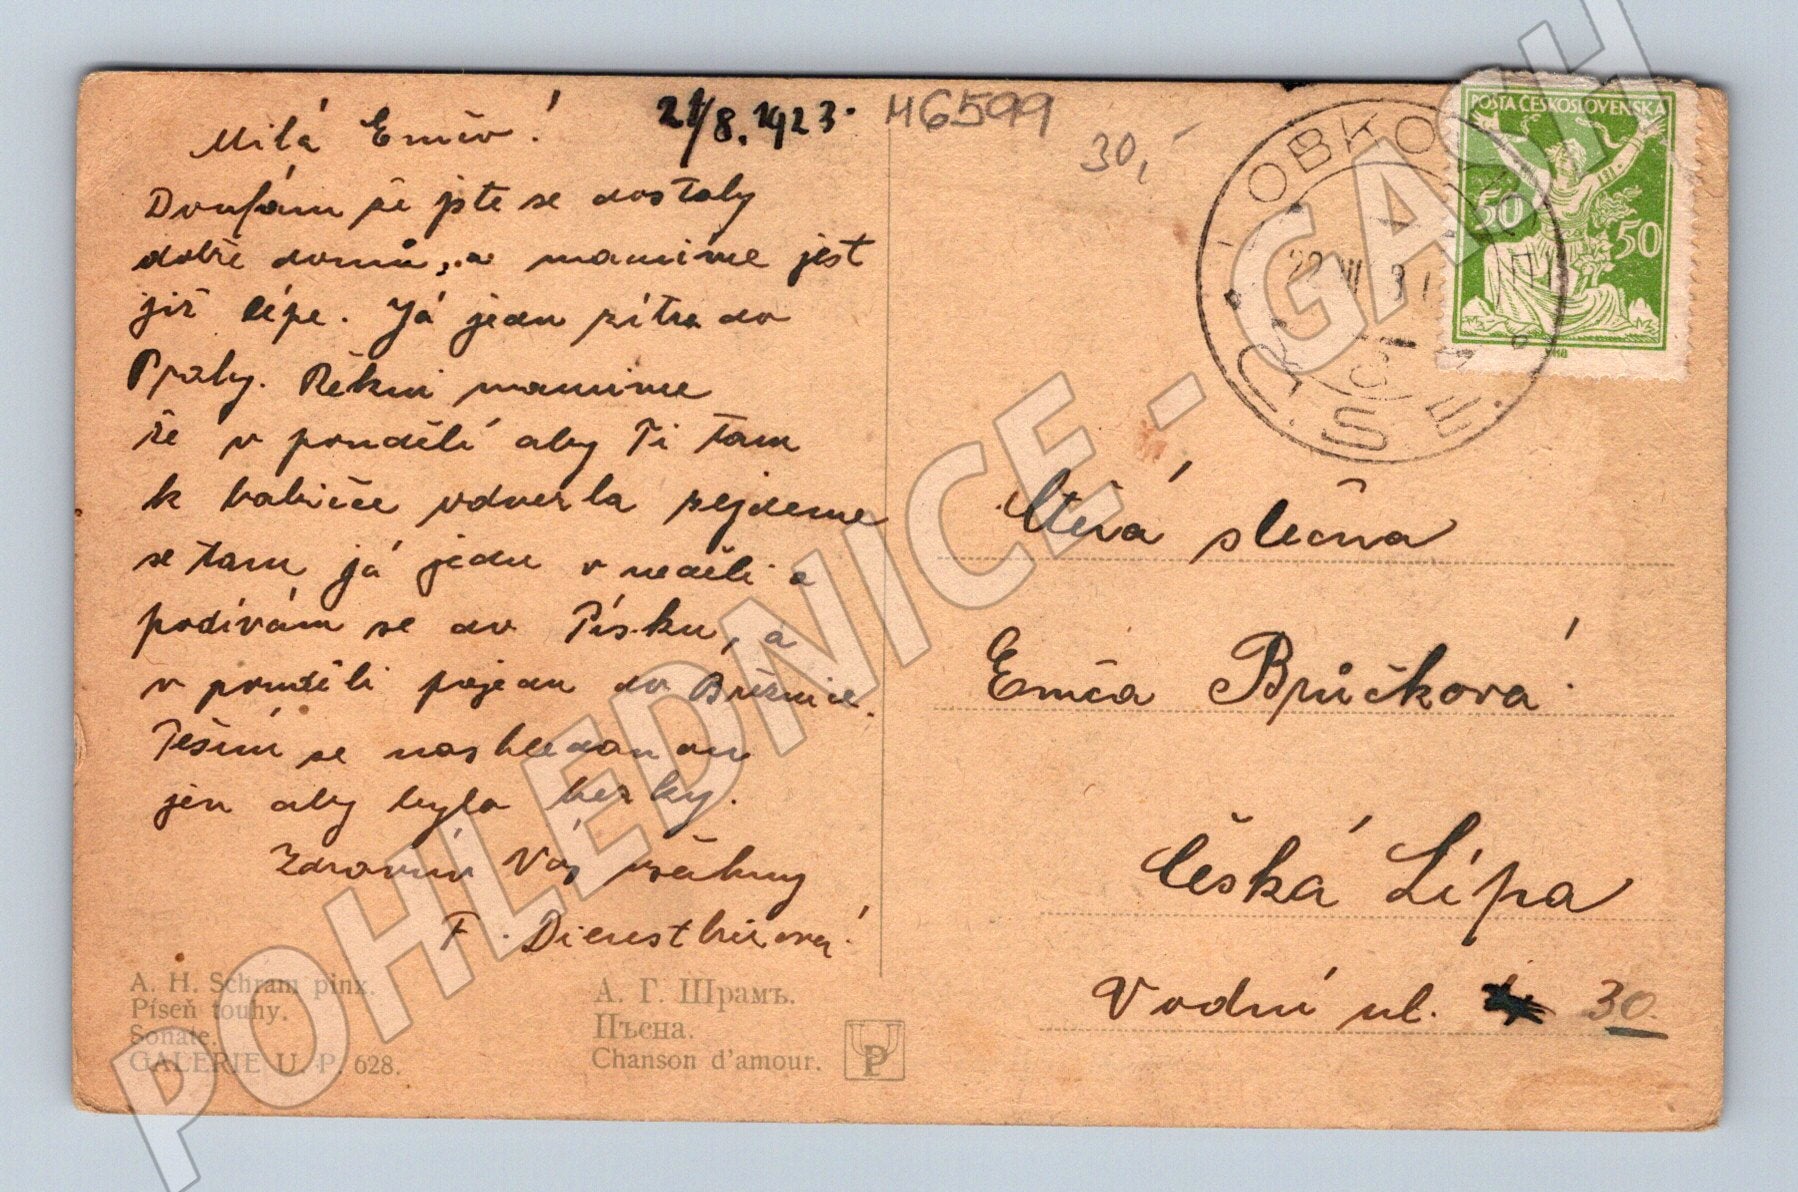 21/8. 1923.
Milá Emčo!
Doufám že jste se dostaly
dobře domů, a mamince jest
již lépe. Já jedu zítra do
Prahy. Řekni mamince
že v pondělí aby Ti tam
k babičce odvezla pojedeme
se tam já jedu v neděli a
podívám se do Písku, a
v pondělí pojedu do Březnice.
Těším se nashledanou
jen aby bylo hezky.
Zdravím Vás všechny
F. Dienstbierová.
A. H. Schram pinx.
Píseň touhy.
Sonate.
GALERIE U. P. 628.
А. Г. Шрамъ.
Пѣсна.
Chanson d'amour.
UP
46599
30,-
POŠTA ČESKOSLOVENSKÁ
50
50
LOBKOVICE
Č.S.R.
Ctěná slečna
Emča Brůčková
Česká Lípa
Vodní ul. 30.
POHLEDNICE - GASH